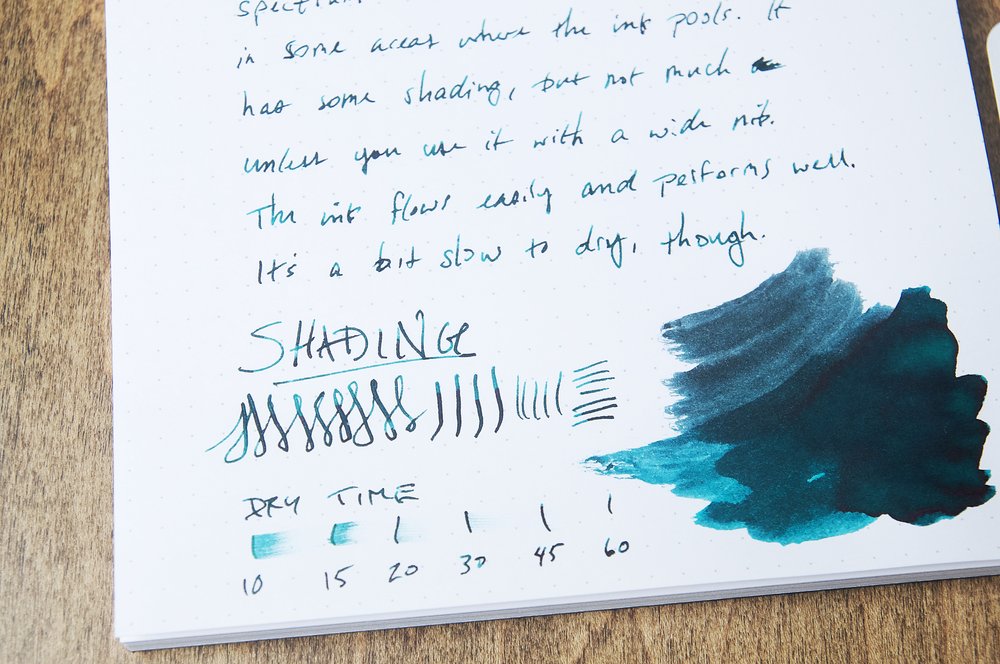 in some areas where the ink pools. It
has some shading, but not much
unless you use it with a wide nib.
The ink flows easily and performs well.
It's a bit slow to dry, though.
SHADING
DRY TIME
10 15 20 30 45 60